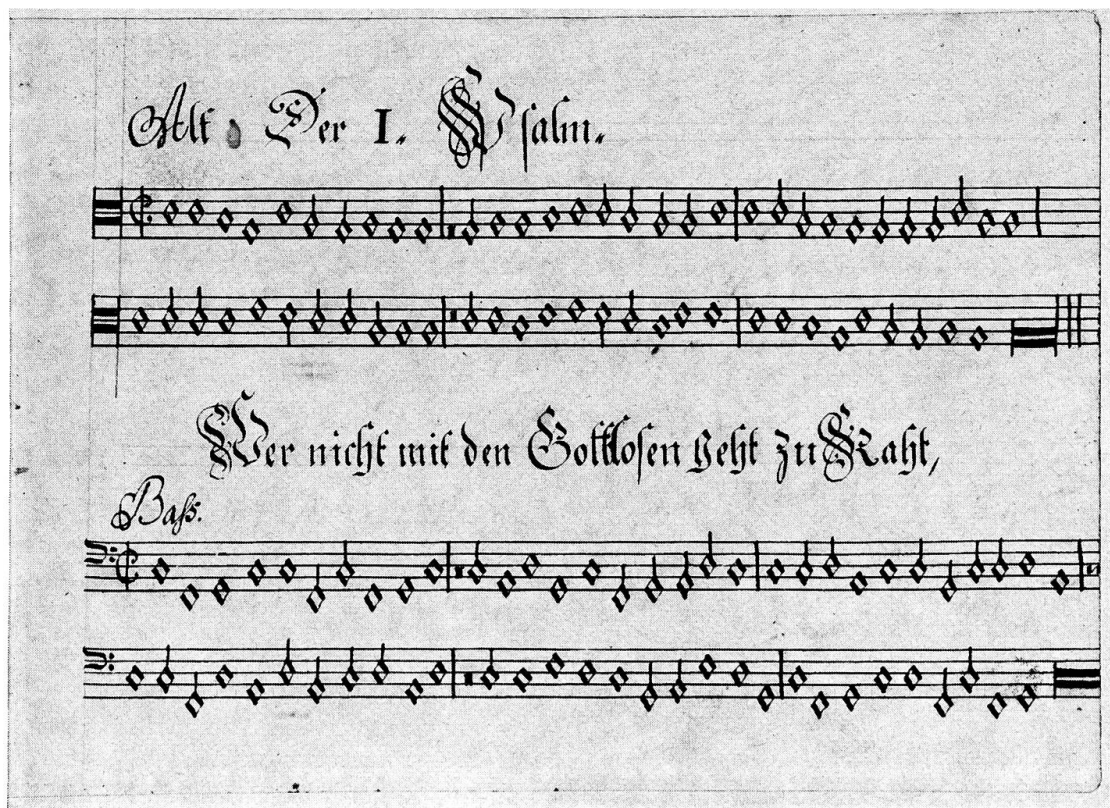 Alt. Der I. Psalm.
Wer nicht mit den Gottlosen geht zu Raht,
Baſs.